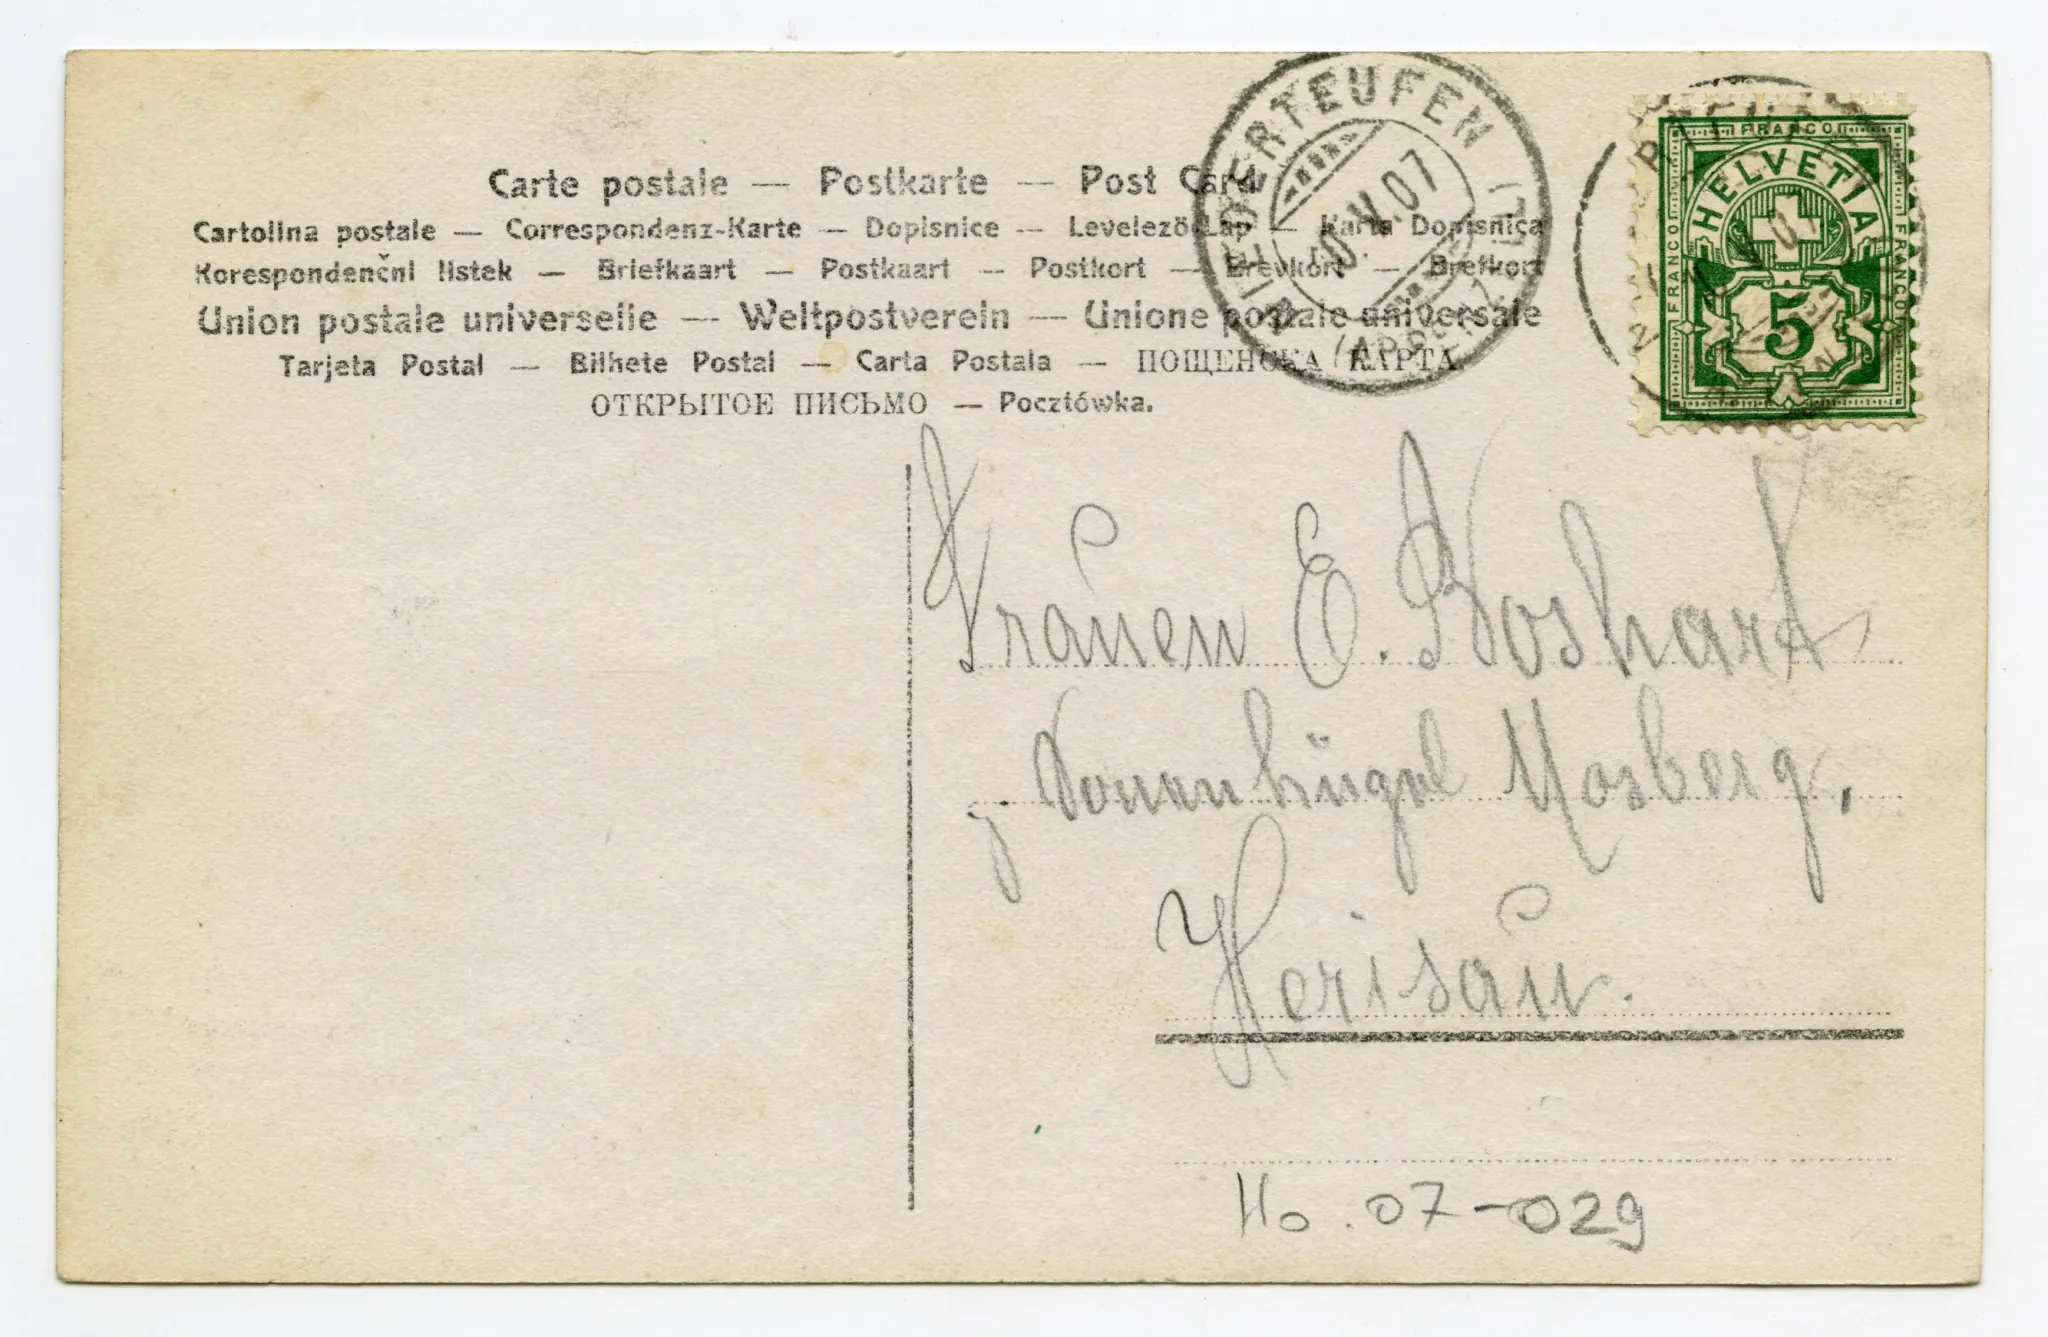 Carte postale — Postkarte — Post Card
Cartolina postale — Correspondenz-Karte — Dopisnice — Levelező-Lap — Karta Dopisnica
Korespondenční listek — Briefkaart — Postkaart — Postkort — Brevkort — Brefkort
Union postale universelle — Weltpostverein — Unione postale universale
Tarjeta Postal — Bilhete Postal — Carta Postala — ПОЩЕНСКА КАРТА.
ОТКРЫТОЕ ПИСЬМО — Pocztówka.
NIEDERTEUFEN
10.V.07
(APPENZELL)
FRANCO
FRANCO
FRANCO
HELVETIA
5
Frauen E. Boshart
z. Sonnenhügel Mosberg,
Herisau.
Ho. 07-029